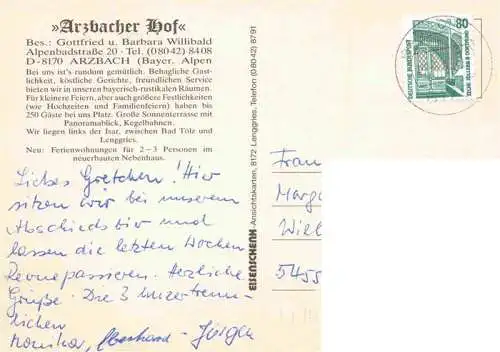 »Arzbacher Hof«
Bes.: Gottfried u. Barbara Willibald
Alpenbadstraße 20 · Tel. (08042) 8408
D-8170 ARZBACH (Bayer. Alpen
Bei uns ist's rundum gemütlich. Behagliche Gast-
lichkeit, köstliche Gerichte, freundlichen Service
bieten wir in unseren bayerisch-rustikalen Räumen.
Für kleinere Feiern, aber auch größere Festlichkeiten
(wie Hochzeiten und Familienfeiern) haben bis
250 Gäste bei uns Platz. Große Sonnenterrasse mit
Panoramablick, Kegelbahnen.
Wir liegen links der Isar, zwischen Bad Tölz und
Lenggries.
Neu: Ferienwohnungen für 2–3 Personen im
neuerbauten Nebenhaus.
Liebes Gretchen! Hier
sitzen wir bei unserem
Abschiedsbier und
lassen die letzten Wochen
Revue passieren. Herzliche
Grüße. Die 3 Unzertrenn-
lichen
Monika, Eberhard - Jürgen
EISENSCHENK Ansichtskarten, 8172 Lenggries, Telefon (08042) 8791
80
DEUTSCHE BUNDESPOST
ZECHE ZOLLERN II · DORTMUND
Frau
Marga
Wiel
5455